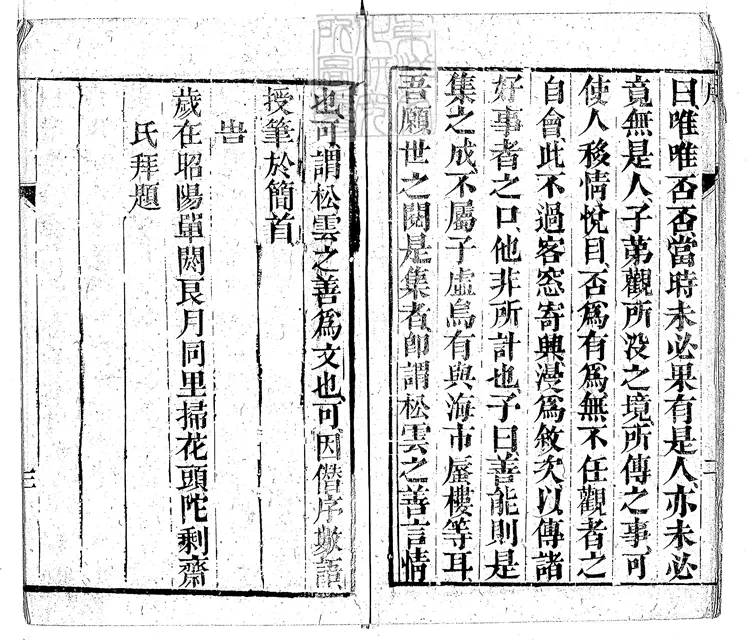 曰唯唯否否當時未必果有是人亦未必
竟無是人子弟觀所没之境所傳之事可
使人移情悅目否為有為無不任觀者之
自會此不過客窓寄興漫為敘次以傳諸
好事者之口他非所計也予曰善能則是
集之成不屬子虛烏有與海市蜃樓等耳
吾願世之閱是集者即謂松雲之善言情
也可謂松雲之善為文也可因僭序數語
授筆於簡首
旹
歲在昭陽單閼艮月同里掃花頭陀剩齋
氏拜題
二
三